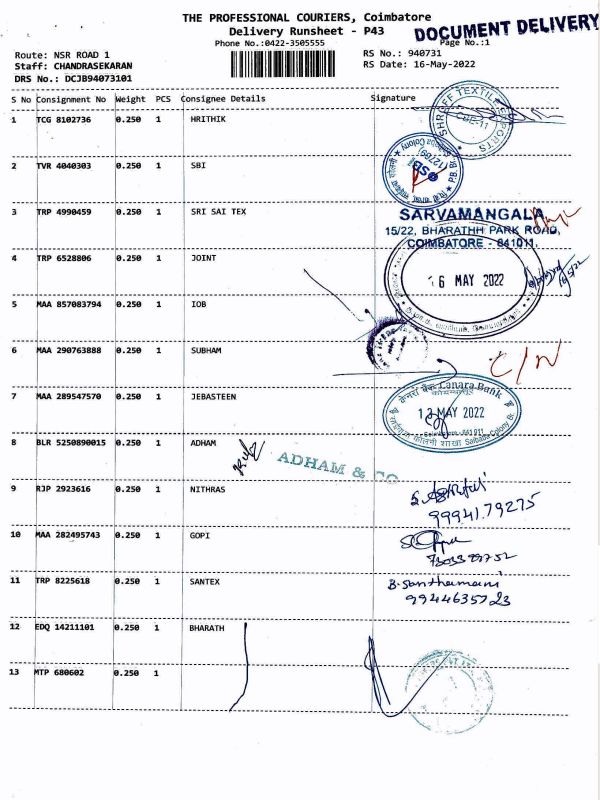 THE PROFESSIONAL COURIERS, Coimbatore
DOCUMENT DELIVERY
Delivery Runsheet - P43
Phone No.:0422-3505555
Page No.:1
Route: NSR ROAD 1
RS No.: 940731
Staff: CHANDRASEKARAN
RS Date: 16-May-2022
DRS No.: DCJB94073101
S No Consignment No Weight PCS Consignee Details Signature
1 TCG 8102736 0.250 1 HRITHIK
SHROFF TEXTILE EXPORTS
CBE-11
2 TVR 4040303 0.250 1 SBI
SBI
(12769)
Colony
3 TRP 4990459 0.250 1 SRI SAI TEX
SARVAMANGALA
15/22, BHARATHH PARK ROAD,
COIMBATORE - 641011.
4 TRP 6528806 0.250 1 JOINT
16 MAY 2022
5 MAA 857083794 0.250 1 IOB
6 MAA 290763888 0.250 1 SUBHAM
C/N
7 MAA 289547570 0.250 1 JEBASTEEN
केनरा बैंक Canara Bank
MAY 2022
Saibaba Colony Br.
8 BLR 5250890015 0.250 1 ADHAM
ADHAM & CO
9 RJP 2923616 0.250 1 NITHRAS
99941.79275
10 MAA 282495743 0.250 1 GOPI
11 TRP 8225618 0.250 1 SANTEX
B. Santhamani
12 EDQ 14211101 0.250 1 BHARATH
13 MTP 680602 0.250 1